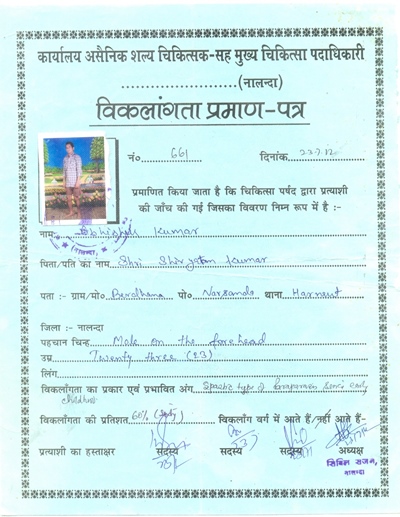 कार्यालय असैनिक शल्य चिकित्सक-सह मुख्य चिकित्सा पदाधिकारी
........................(नालन्दा)
विकलांगता प्रमाण-पत्र
नं०......661...... दिनांक...23.7.12
प्रमाणित किया जाता है कि चिकित्सा पर्षद द्वारा प्रत्याशी
की जाँच की गई जिसका विवरण निम्न रूप में है :-
नाम...... Kumar
पिता/पति का नाम...Shri Kumar
पता :- ग्राम/मो० पो० थाना Harnaut
जिला :- नालन्दा
पहचान चिन्ह...Mole on the forehead
उम्र......Twenty three (23)
लिंग
विकलांगता का प्रकार एवं प्रभावित अंग...Spastic type of since early
childhood
विकलांगता की प्रतिशत..60% विकलांग वर्ग में आते हैं/नहीं आते हैं-
प्रत्याशी का हस्ताक्षर सदस्य सदस्य सदस्य अध्यक्ष
सिविल सर्जन,
नालन्दा